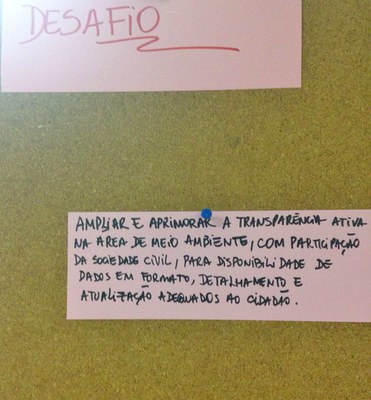 DESAFIO
AMPLIAR E APRIMORAR A TRANSPARÊNCIA ATIVA
NA ÁREA DE MEIO AMBIENTE, COM PARTICIPAÇÃO
DA SOCIEDADE CIVIL, PARA DISPONIBILIDADE DE
DADOS EM FORMATO, DETALHAMENTO E
ATUALIZAÇÃO ADEQUADOS AO CIDADÃO.